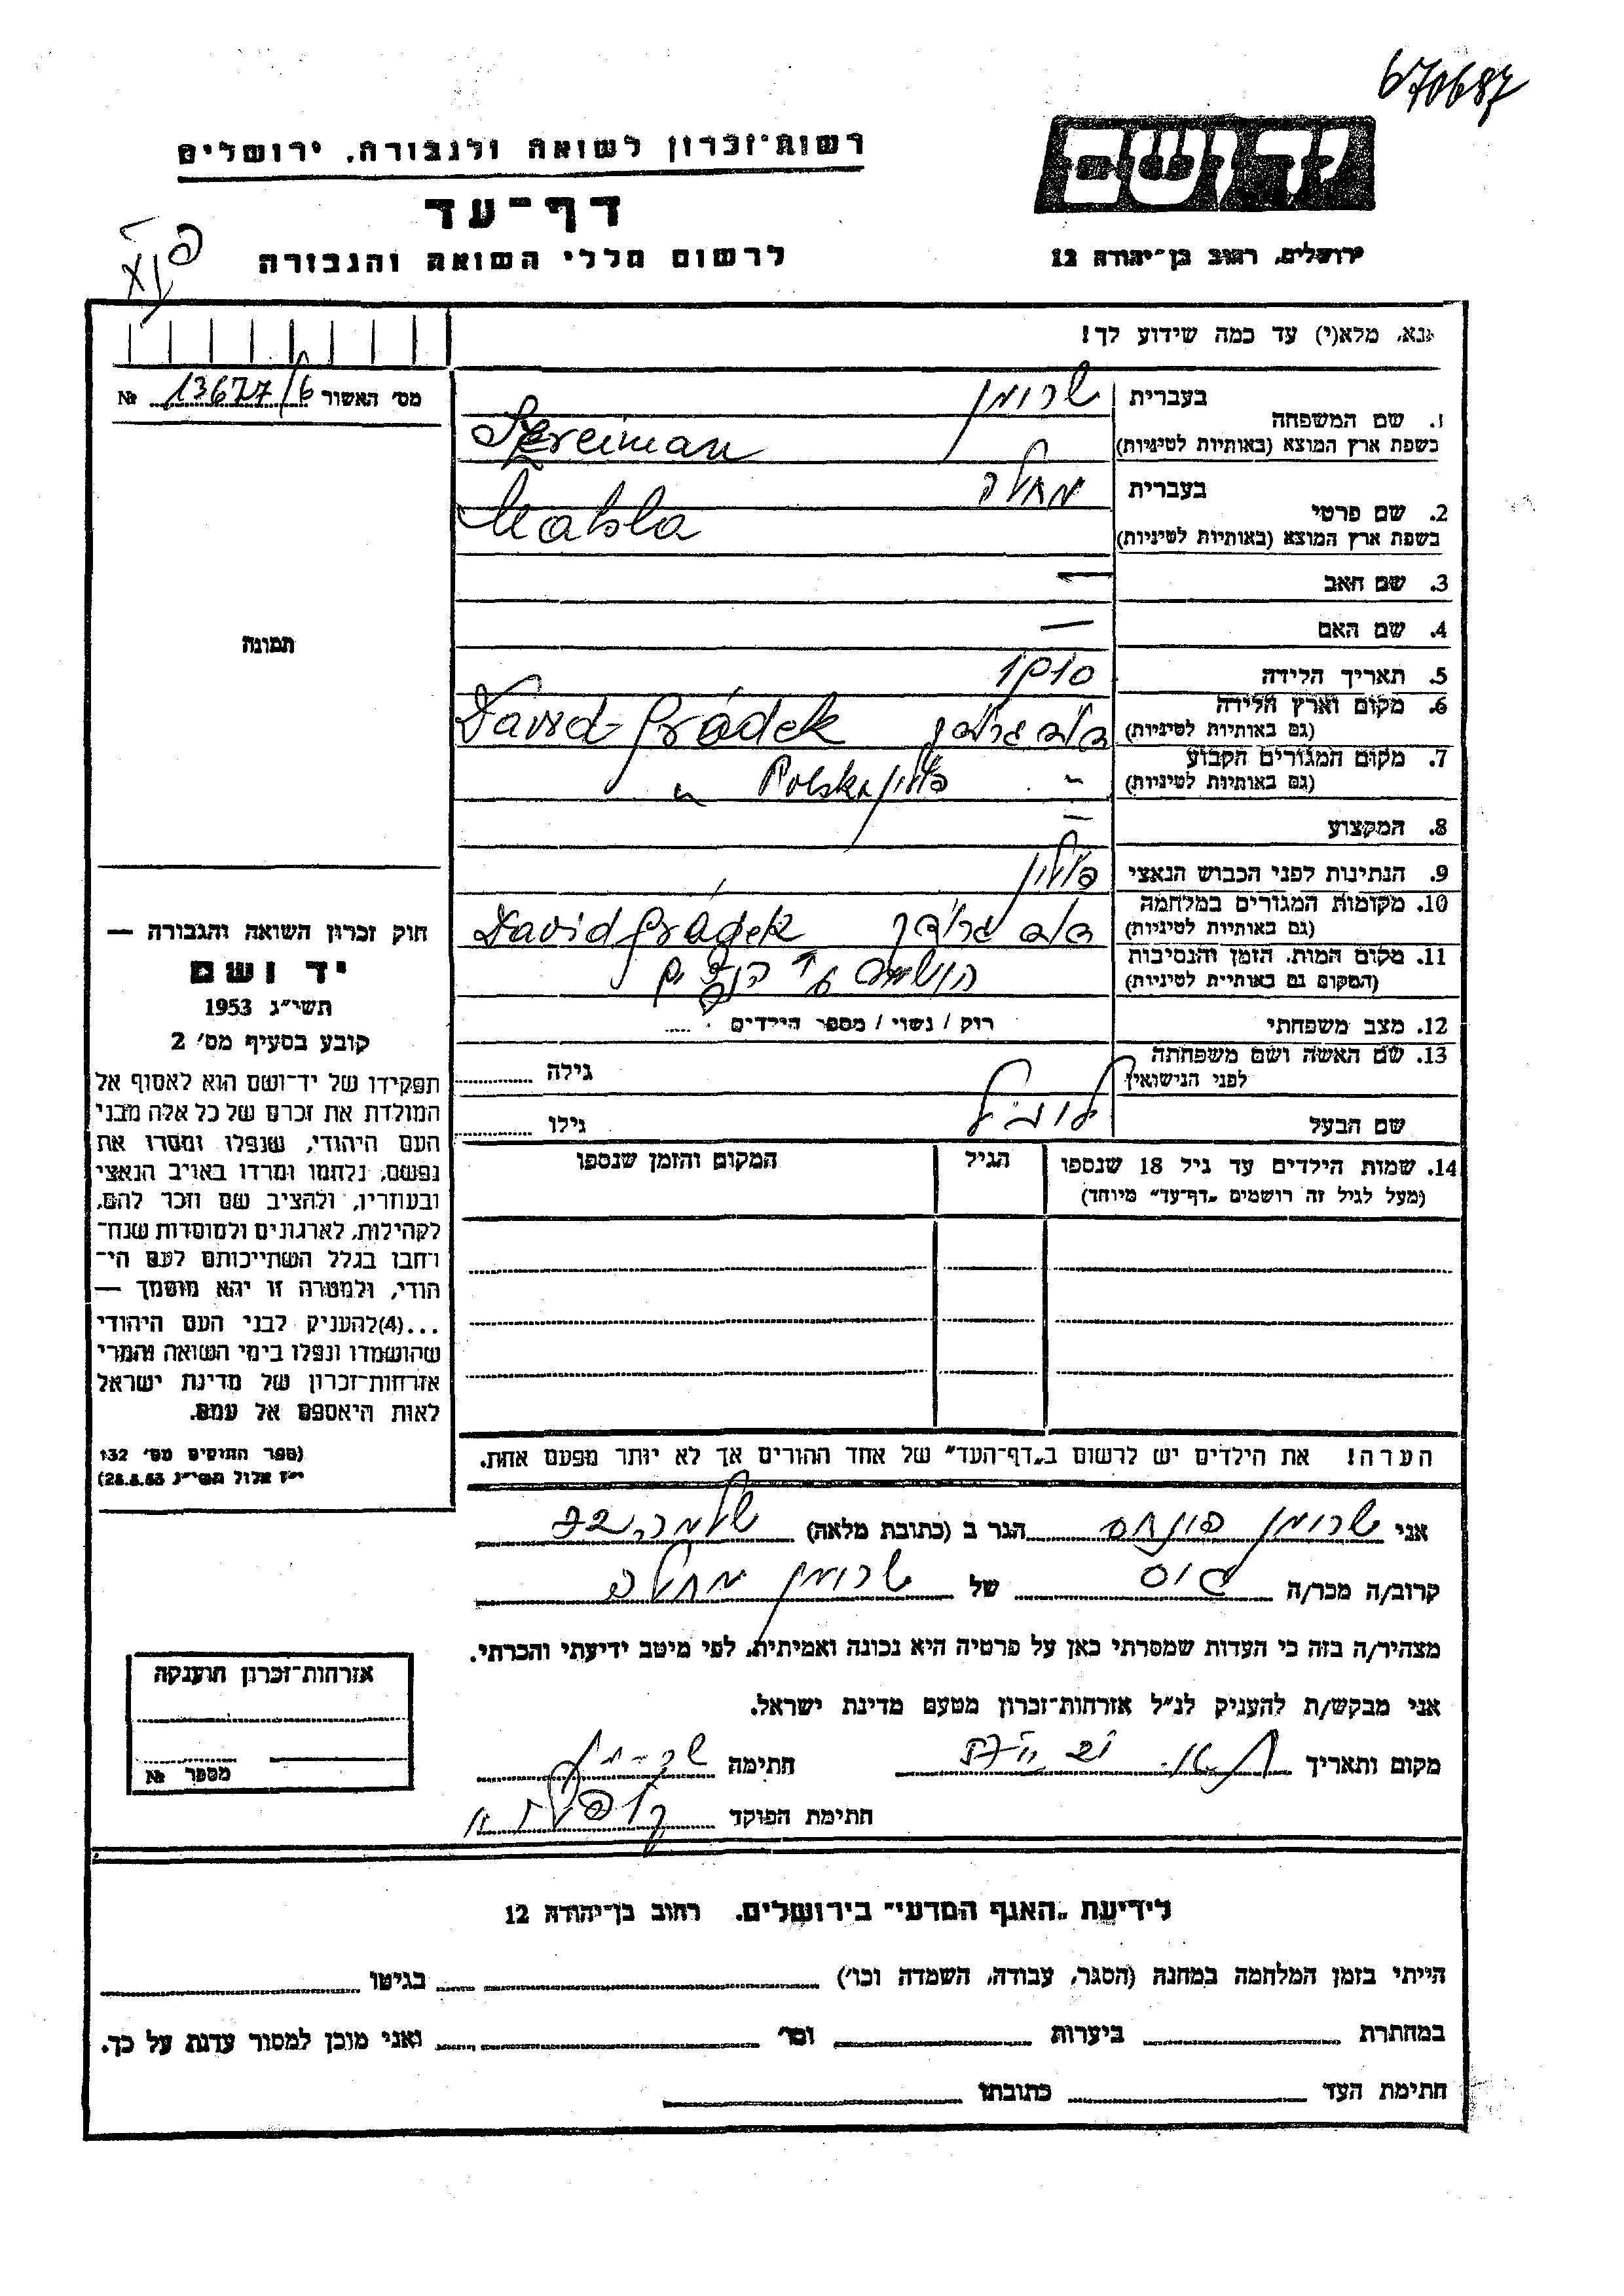 670687
רשות־זכרון לשואה ולגבורה, ירושלים
יד ושם
דף־עד
לרשום חללי השואה והגבורה
ירושלים, רחוב בן־יהודה 12
אנא, מלא(י) עד כמה שידוע לך!
מס׳ האשור 13677/6 №
תמונה
1. שם המשפחה
בעברית שרומן
בשפת ארץ המוצא (באותיות לטיניות) Szreiman
2. שם פרטי
בעברית מחלה
בשפת ארץ המוצא (באותיות לטיניות) Mahla
3. שם האב —
4. שם האם —
5. תאריך הלידה
6. מקום וארץ הלידה
(גם באותיות לטיניות) David-Gródek
7. מקום המגורים הקבוע
(גם באותיות לטיניות) ״ פולין Polska ״
8. המקצוע —
9. הנתינות לפני הכבוש הנאצי פולין
10. מקומות המגורים במלחמה
(גם באותיות לטיניות) David Gródek
11. מקום המות, הזמן והנסיבות
(המקום גם באותיות לטיניות)
12. מצב משפחתי רוק / נשוי / מספר הילדים
13. שם האשה ושם משפחתה
לפני הנישואין גילה
שם הבעל גילו
14. שמות הילדים עד גיל 18 שנספו
(מעל לגיל זה רושמים „דף־עד״ מיוחד)
הגיל
המקום והזמן שנספו
הערה! את הילדים יש לרשום ב„דף־העד״ של אחד ההורים אך לא יותר מפעם אחת.
חוק זכרון השואה והגבורה —
יד ושם
תשי״ג 1953
קובע בסעיף מס׳ 2
תפקידו של יד־ושם הוא לאסוף אל
המולדת את זכרם של כל אלה מבני
העם היהודי, שנפלו ומסרו את
נפשם, נלחמו ומרדו באויב הנאצי
ובעוזריו, ולהציב שם וזכר להם,
לקהילות, לארגונים ולמוסדות שנח־
רחבו בגלל השתייכותם לעם הי־
הודי, ולמטרה זו יהא מוסמך —
...(4)להעניק לבני העם היהודי
שהושמדו ונפלו בימי השואה והמרי
אזרחות־זכרון של מדינת ישראל
לאות היאספם אל עמם.
(ספר החוקים מס׳ 132
י״ז אלול תשי״ג 28.8.53)
אני שרומן פנחס הגר ב (כתובת מלאה)
קרוב/ה מכר/ה גיס של שרומן מחלה
מצהיר/ה בזה כי העדות שמסרתי כאן על פרטיה היא נכונה ואמיתית, לפי מיטב ידיעתי והכרתי.
אני מבקש/ת להעניק לנ״ל אזרחות־זכרון מטעם מדינת ישראל.
מקום ותאריך חתימה
חתימת הפוקד
אזרחות־זכרון הוענקה
מספר №
לידיעת „האגף המדעי״ בירושלים, רחוב בן־יהודה 12
הייתי בזמן המלחמה במחנה (הסגר, עבודה, השמדה וכו׳) בגיטו
במחתרת ביערות וכו׳ ואני מוכן למסור עדות על כך.
חתימת העד כתובתו